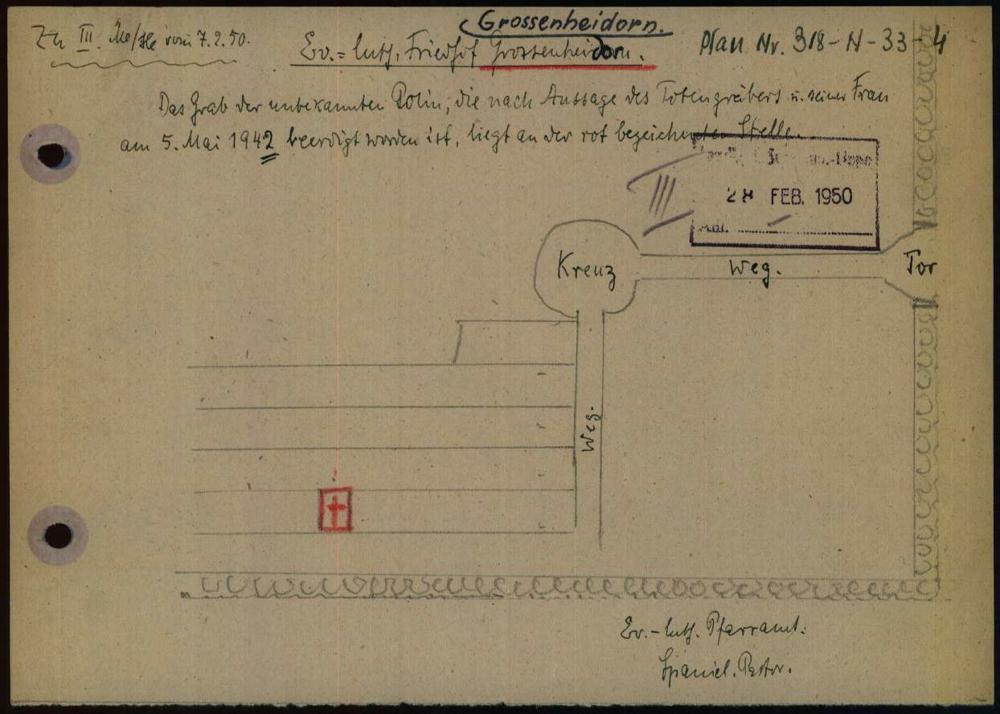 Grossenheidorn.
Zu III. vom 7.2.50.
Ev.=luth. Friedhof Grossenheidorn.
Plan Nr. 318-N-33-4
Das Grab der unbekannten Polin, die nach Aussage des Totengräbers u. seiner Frau
am 5. Mai 1942 beerdigt worden ist, liegt an der rot bezeichneten Stelle.
III
28 FEB. 1950
Kreuz
Weg.
Tor
Weg.
Ev.-luth. Pfarramt.
Pastor.